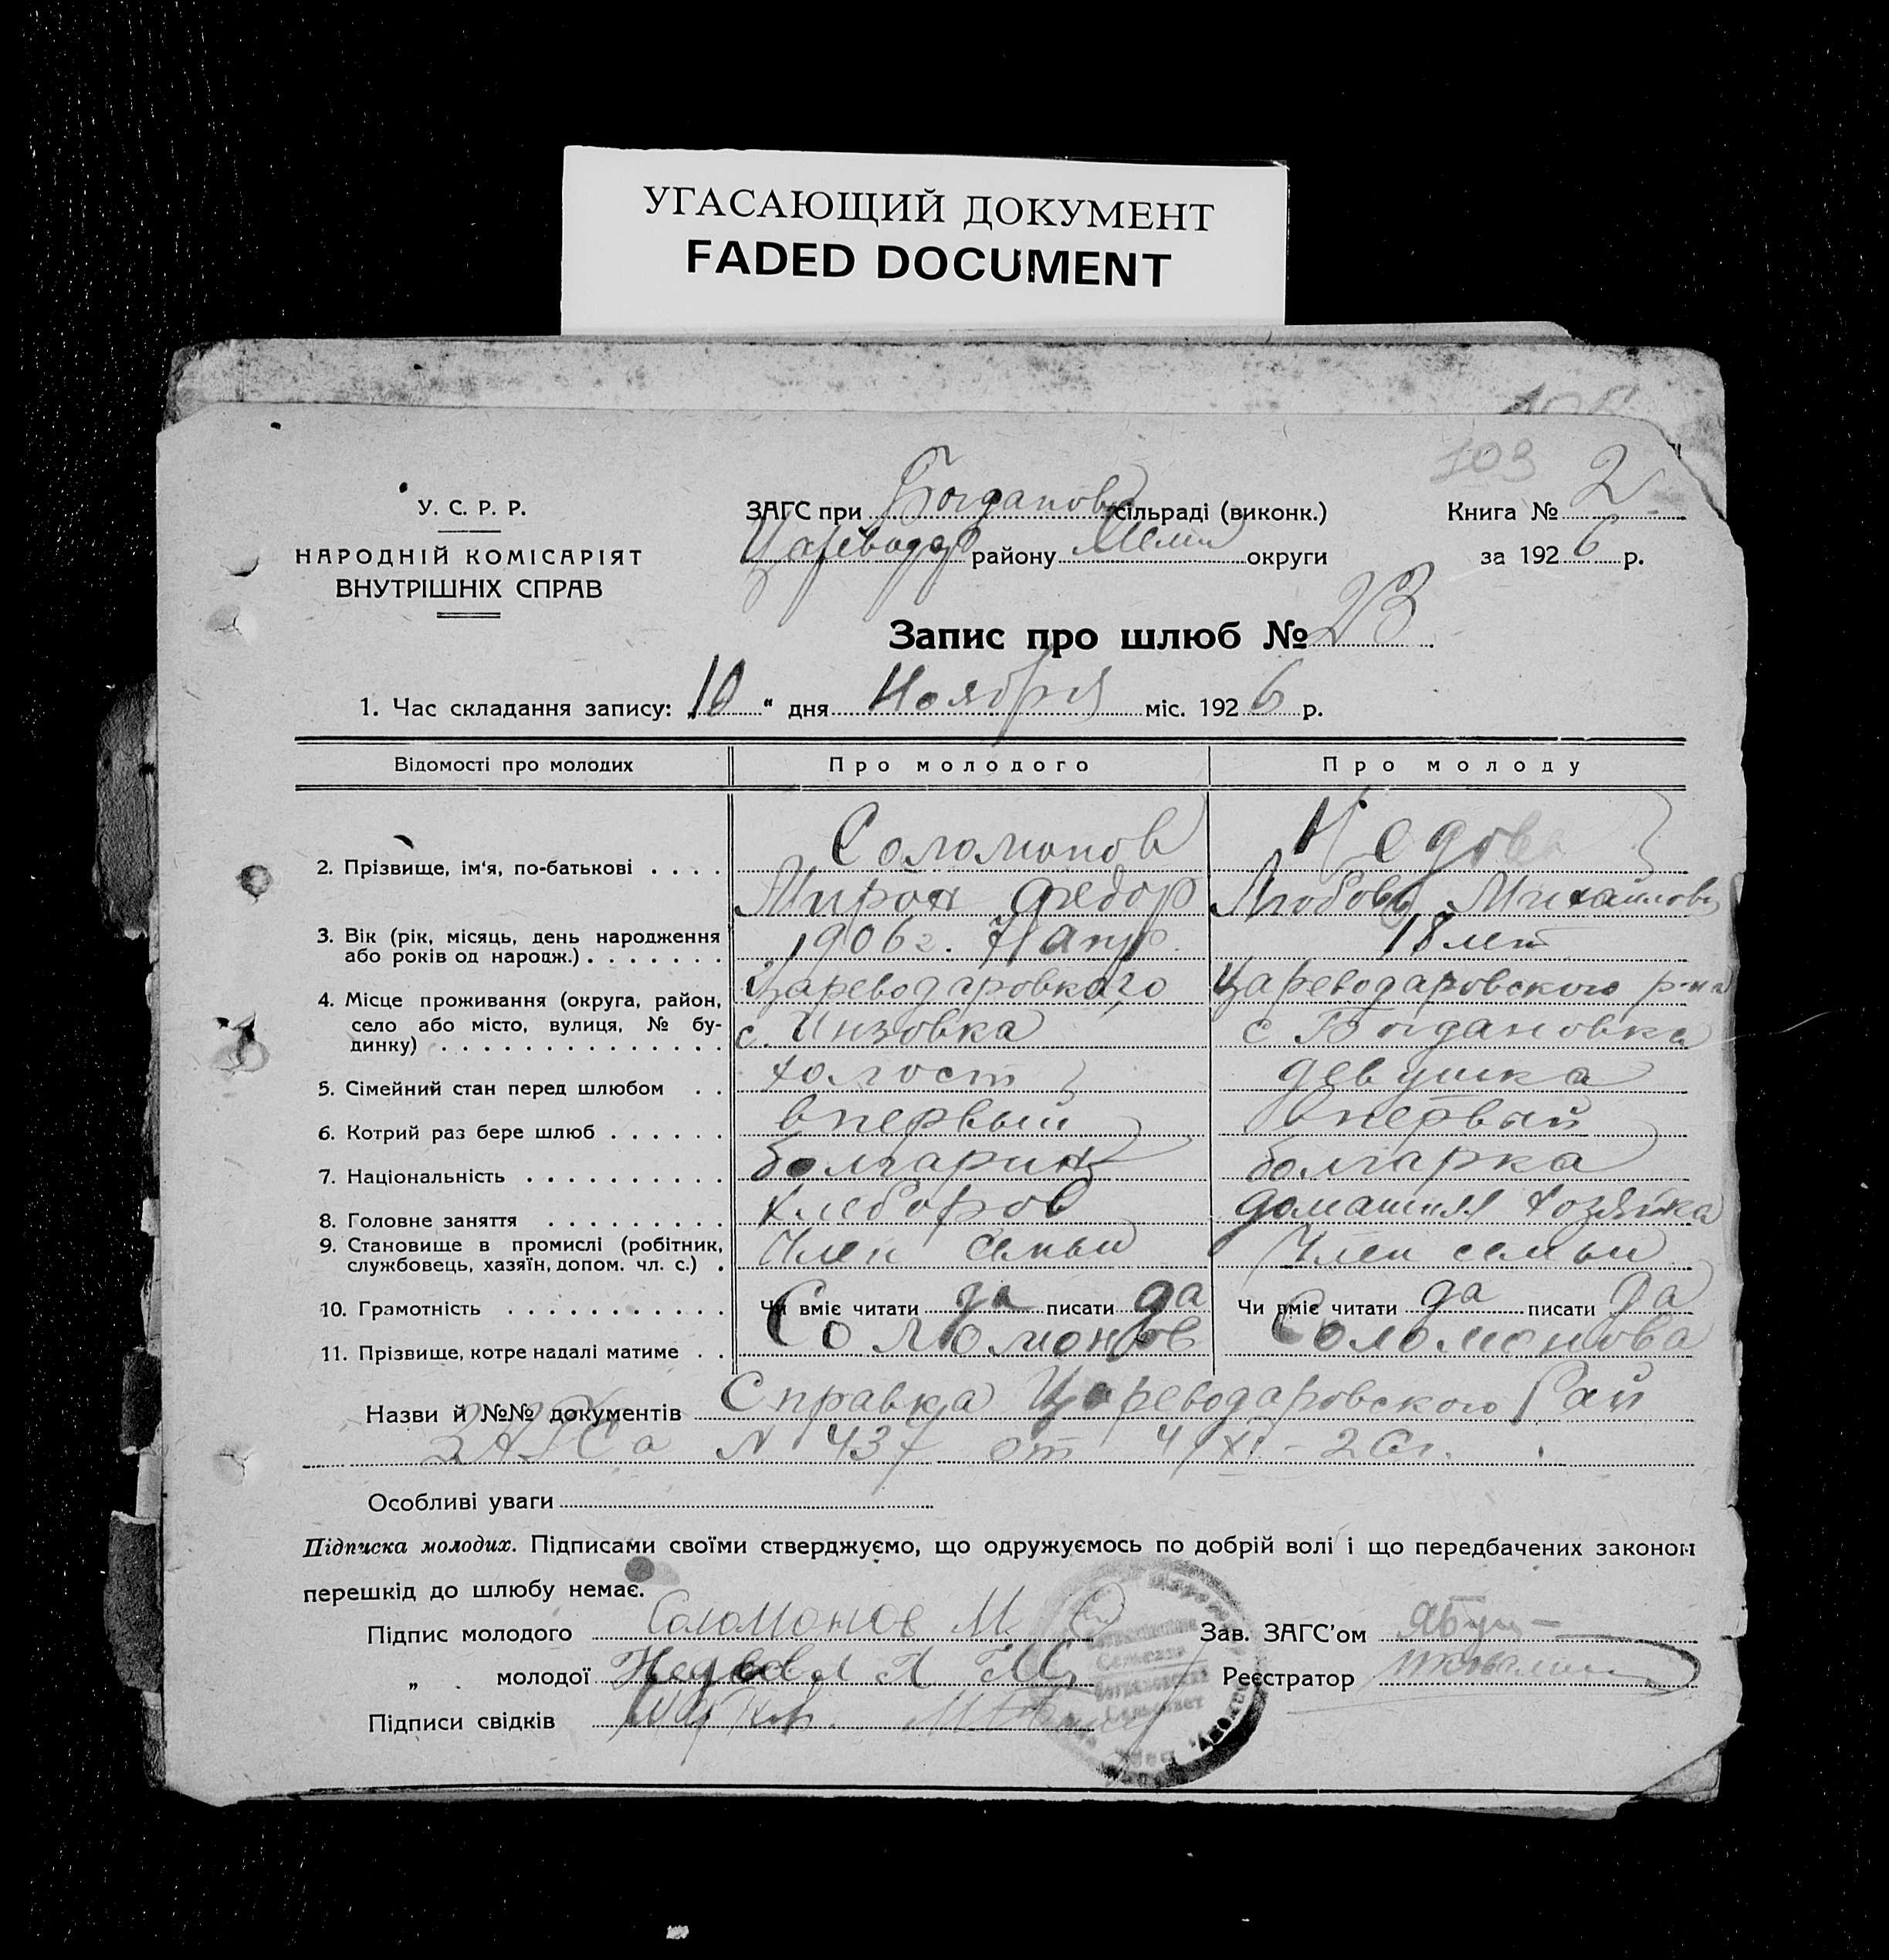 УГАСАЮЩИЙ ДОКУМЕНТ
FADED DOCUMENT
103
У. С. Р. Р.
НАРОДНІЙ КОМІСАРІЯТ
ВНУТРІШНІХ СПРАВ
ЗАГС при Богданов сільраді (виконк.)
Цареводар району Мелит округи
Книга № 2
за 1926 р.
Запис про шлюб № 23
1. Час складання запису: „10" дня Ноября міс. 1926 р.
Відомості про молодих Про молодого Про молоду
2. Прізвище, ім'я, по-батькові . . . . Соломонов Недова
Мирон Федор Любовь Михайлов
3. Вік (рік, місяць, день народження або років од народж.) . . . . . . . 1906 г. 7 апр. 18 лет
4. Місце проживання (округа, район, село або місто, вулиця, № будинку) . . . . . . . . . . . . . . Цареводаровкого Цареводаровского р-на
с. Инзовка с Богдановка
5. Сімейний стан перед шлюбом . . холост девушка
6. Котрий раз бере шлюб . . . . . . впервый впервый
7. Національність . . . . . . . . . . болгарин болгарка
8. Головне заняття . . . . . . . . . хлебороб домашняя хозяйка
9. Становище в промислі (робітник, службовець, хазяїн, допом. чл. с.) . Член семьи Член семьи
10. Грамотність . . . . . . . . . . . Чи вміє читати да писати да Чи вміє читати да писати да
11. Прізвище, котре надалі матиме . . Соломонов Соломонова
Назви й №№ документів Справка Цареводаровского Рай
ЗАГСа N 437 от 4/XI-26 г.
Особливі уваги
Підписка молодих. Підписами своїми стверджуємо, що одружуємось по добрій волі і що передбачених законом
перешкід до шлюбу немає.
Підпис молодого Соломонов М.
Зав. ЗАГС'ом
„ молодої Недова Л М
Реєстратор
Підписи свідків